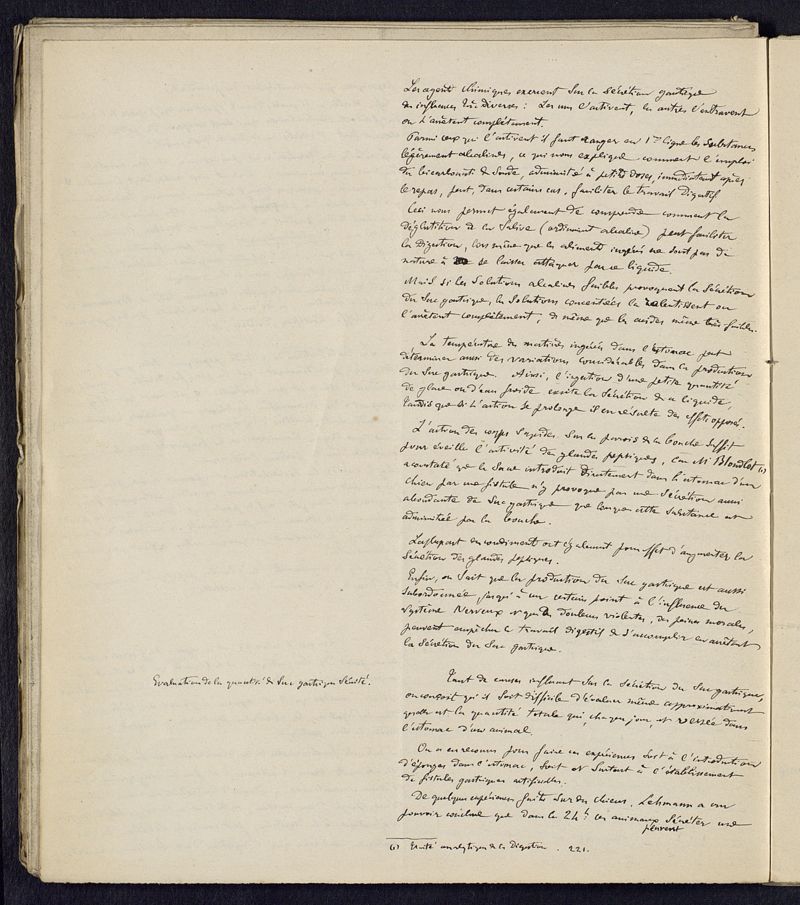 Les agents chimiques exercent sur la sécrétion gastrique
des influences très diverses : Les uns l'activent, les autres l'entravent
ou l'arrêtent complètement.
Parmi ceux qui l'activent il faut ranger en 1re ligne les substances
légèrement alcalines, ce qui nous explique comment l'emploi
du bicarbonate de soude, administré à petites doses, immédiatement après
le repas, peut, dans certains cas, faciliter le travail digestif.
Ceci nous permet également de comprendre comment la
déglutition de la salive (ordinairement alcaline) peut faciliter
la digestion, lors même que les aliments ingérés ne sont pas de
nature à se laisser attaquer par ce liquide.
Mais si les solutions alcalines faibles provoquent la sécrétion
du suc gastrique, les solutions concentrées la ralentissent ou
l'arrêtent complètement, de même que les acides même très faibles.
La température des matières ingérées dans l'estomac peut
déterminer aussi des variations considérables dans la production
du suc gastrique. Ainsi, l'ingestion d'une petite quantité
de glace ou d'eau froide excite la sécrétion de ce liquide,
tandis que si l'action se prolonge il en résulte des effets opposés.
L'action des corps sapides sur les parois de la bouche suffit
pour éveiller l'activité des glandes peptiques, car Mr Blondlot (1)
a constaté que le sucre introduit directement dans l'estomac d'un
chien par une fistule n'y provoque pas une sécrétion aussi
abondante de suc gastrique que lorsque cette substance est
administrée par la bouche.
La plupart des condiments ont également pour effet d'augmenter la
sécrétion des glandes peptiques.
Enfin, on sait que la production du suc gastrique est aussi
subordonnée, jusqu'à un certain point à l'influence du
système nerveux et que des douleurs violentes, des peines morales,
peuvent empêcher le travail digestif de s'accomplir en arrêtant
la sécrétion du suc gastrique.
Evaluation de la quantité de suc gastrique sécrété.
Tant de causes influant sur la sécrétion du suc gastrique,
on conçoit qu'il soit difficile d'évaluer même approximativement
quelle est la quantité totale qui, chaque jour, est versée dans
l'estomac d'un animal.
On a eu recours pour faire ces expériences soit à l'introduction
d'éponges dans l'estomac, soit et surtout à l'établissement
de fistules gastriques artificielles.
De quelques expériences faites sur des chiens, Lehmann a cru
pouvoir conclure que dans les 24h. ces animaux peuvent sécréter une
(1) Traité analytique de la Digestion. 221.